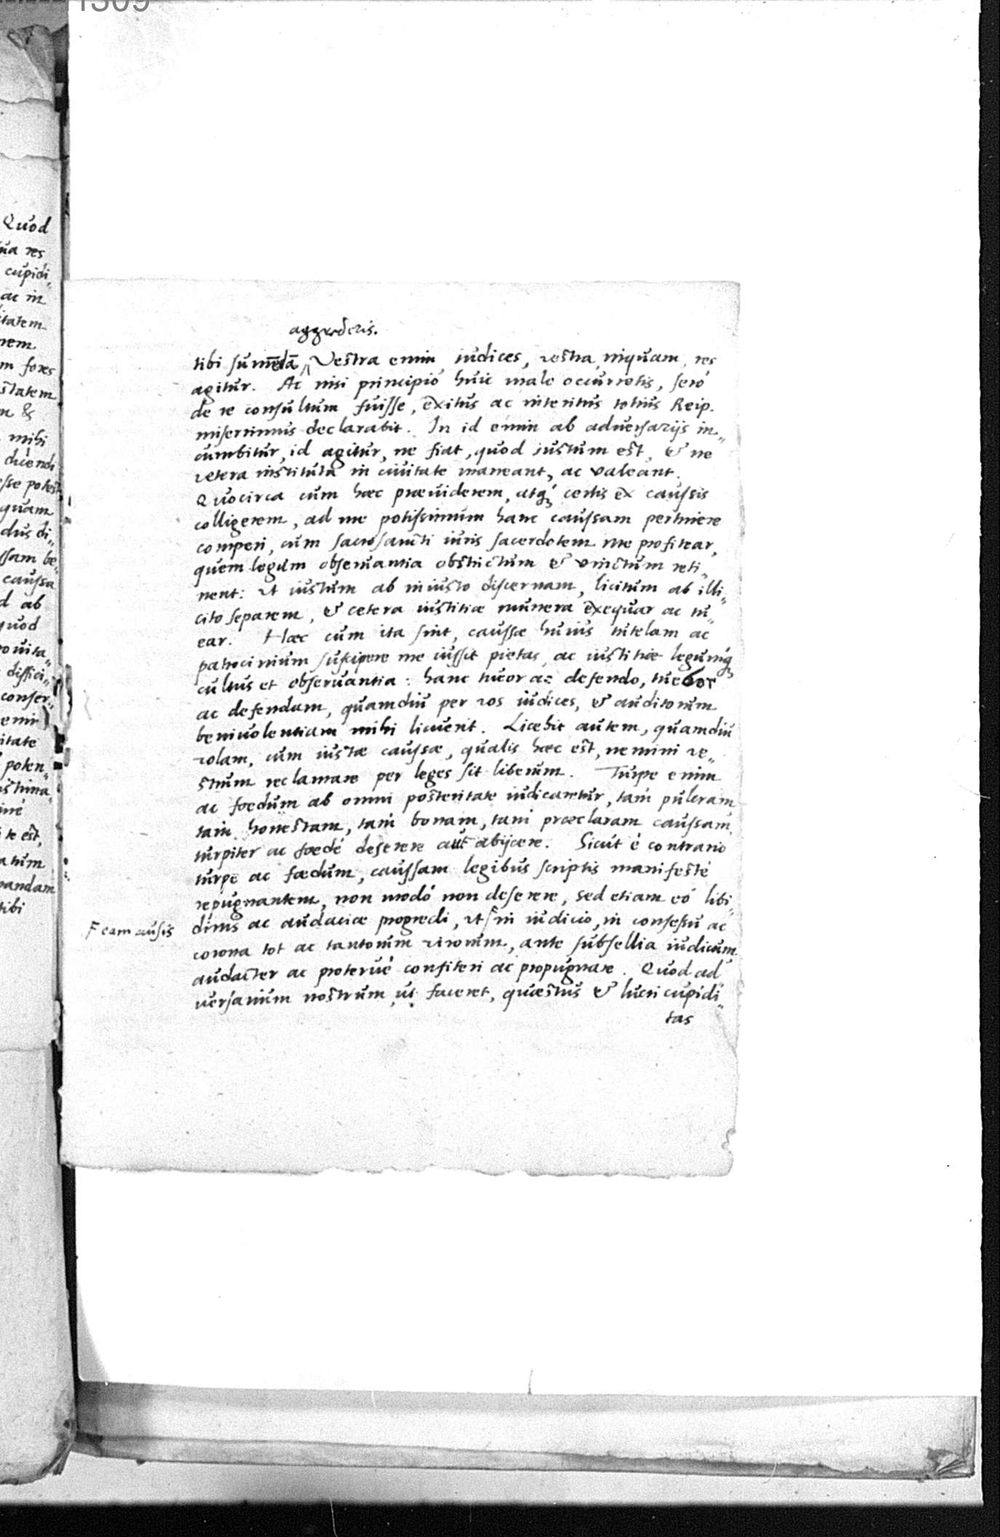 1309
Quod
ua res
cupidi„
ac in
itatem
nem
m fores
statem
n &
mihi
dicendi
esse potest
quam
dus di„
ssam be„
caussa
d ab
quod
ouita„
diffici„
conser„
enim
itate
poten„
te est,
atum
nandam
tibi
aggrederis.
tibi Vestra enim iudices, vestra, inquam, res
agitur. Ac nisi principiò huic malo occurretis, serò
de re consultum fuisse, exitus ac interitus totius Reip.
miserrimus declarabit. In id enim ab adversarijs in„
cumbitur, id agitur, ne fiat, quod iustum est, & ne
vetera instituta in civitate maneant, ac valeant.
Quocirca cum hæc præviderem, atq́ certis ex caussis
colligerem, ad me potissimum hanc caussam pertinere
comperi, cum sacrosancti iuris sacerdotem me profitear,
quem legum observantia obstrictum & vinctum reti„
nent: ut iustum ab iniusto discernam, licitum ab illi„
cito separem, & cetera iustitiæ munera exequar ac tu„
ear. Hæc cum ita sint, caussæ huius tutelam ac
patrocinium suscipere me iussit pietas, ac iustitiæ legumq́
cultus et observantia: hanc tueor ac defendo, tuebor
ac defendam, quamdiu per vos iudices, & auditorum
benivolentiam mihi licuerit. Licebit autem, quamdiu
volam, cum iustæ caussæ, qualis hæc est, nemini ve„
strum reclamare per leges sit liberum. Turpe enim
ac fœdum ab omni posteritate iudicaretur, tam pulcram
tam honestam, tam bonam, tam præclaram caussam,
turpiter ac fœdè deserere aut abijcere. Sicut è contrario
turpe ac fœdum, caussam legibus scriptis manifestè
repugnantem, non modò non deserere, sed etiam eò libi„
F eam ausis dinis ac audaciæ progredi, ut F in iudicio, in consessu ac
corona tot ac tantorum virorum, ante subsellia iudicum
audacter ac protervè confiteri ac propugnare. Quod ad
versarium nostrum, ut faceret, quæstus & lucri cupidi„
tas